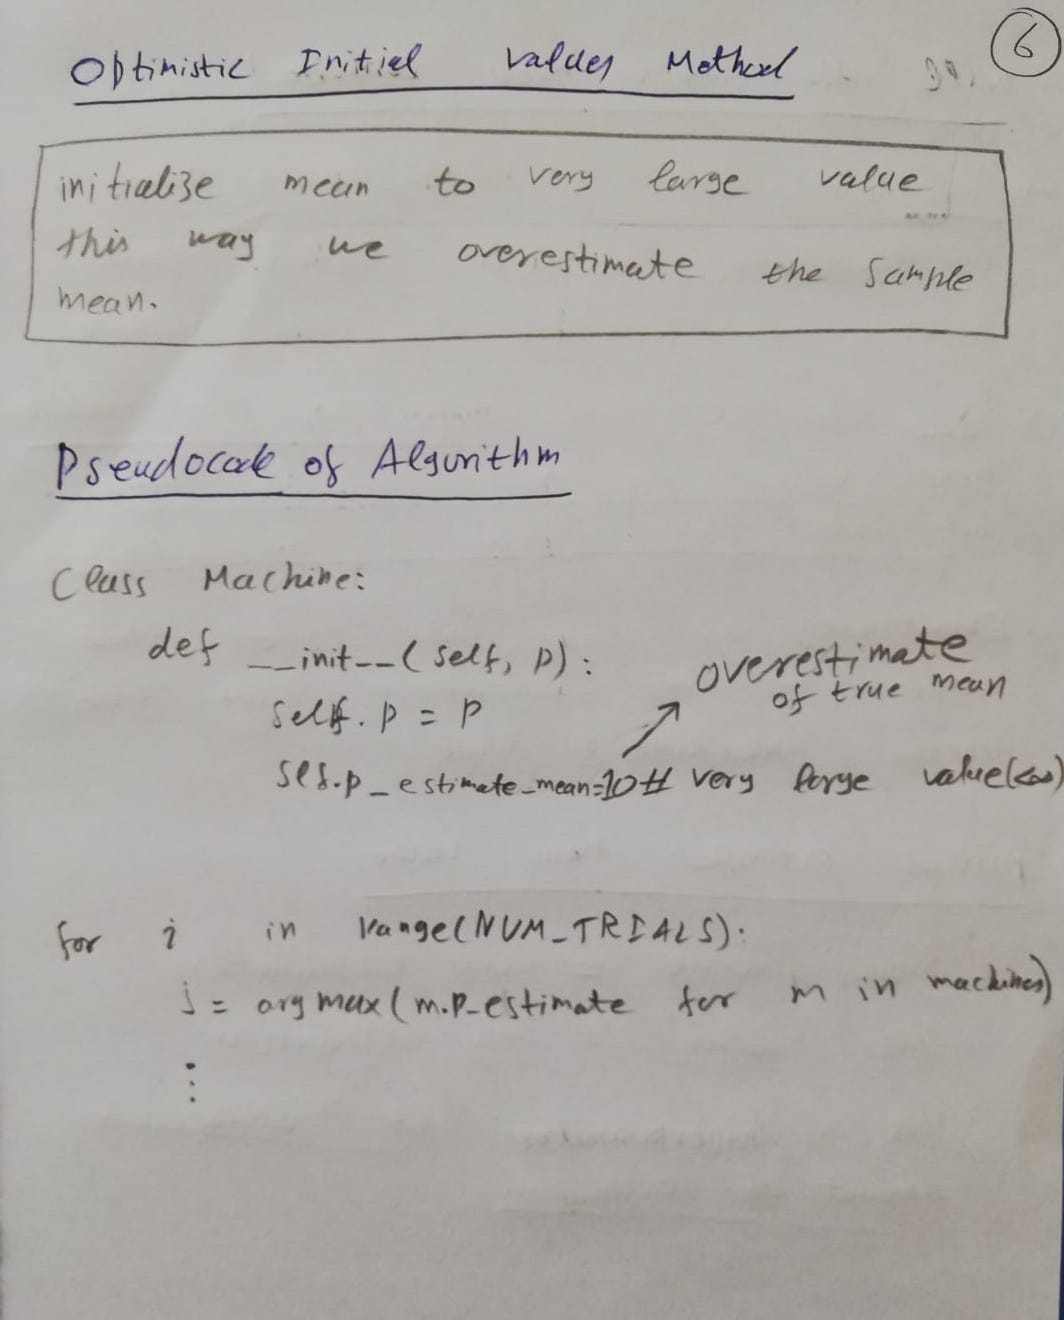 6
Optimistic Initial Values Method
initialize mean to very large value
this way we overestimate the sample
mean.
Pseudocode of Algorithm
Class Machine:
def __init__(self, p):
overestimate
of true mean
self.p = p
self.p_estimate_mean=10# very large value(<∞)
for i in range(NUM_TRIALS):
j = argmax(m.p_estimate for m in machines)
⋮